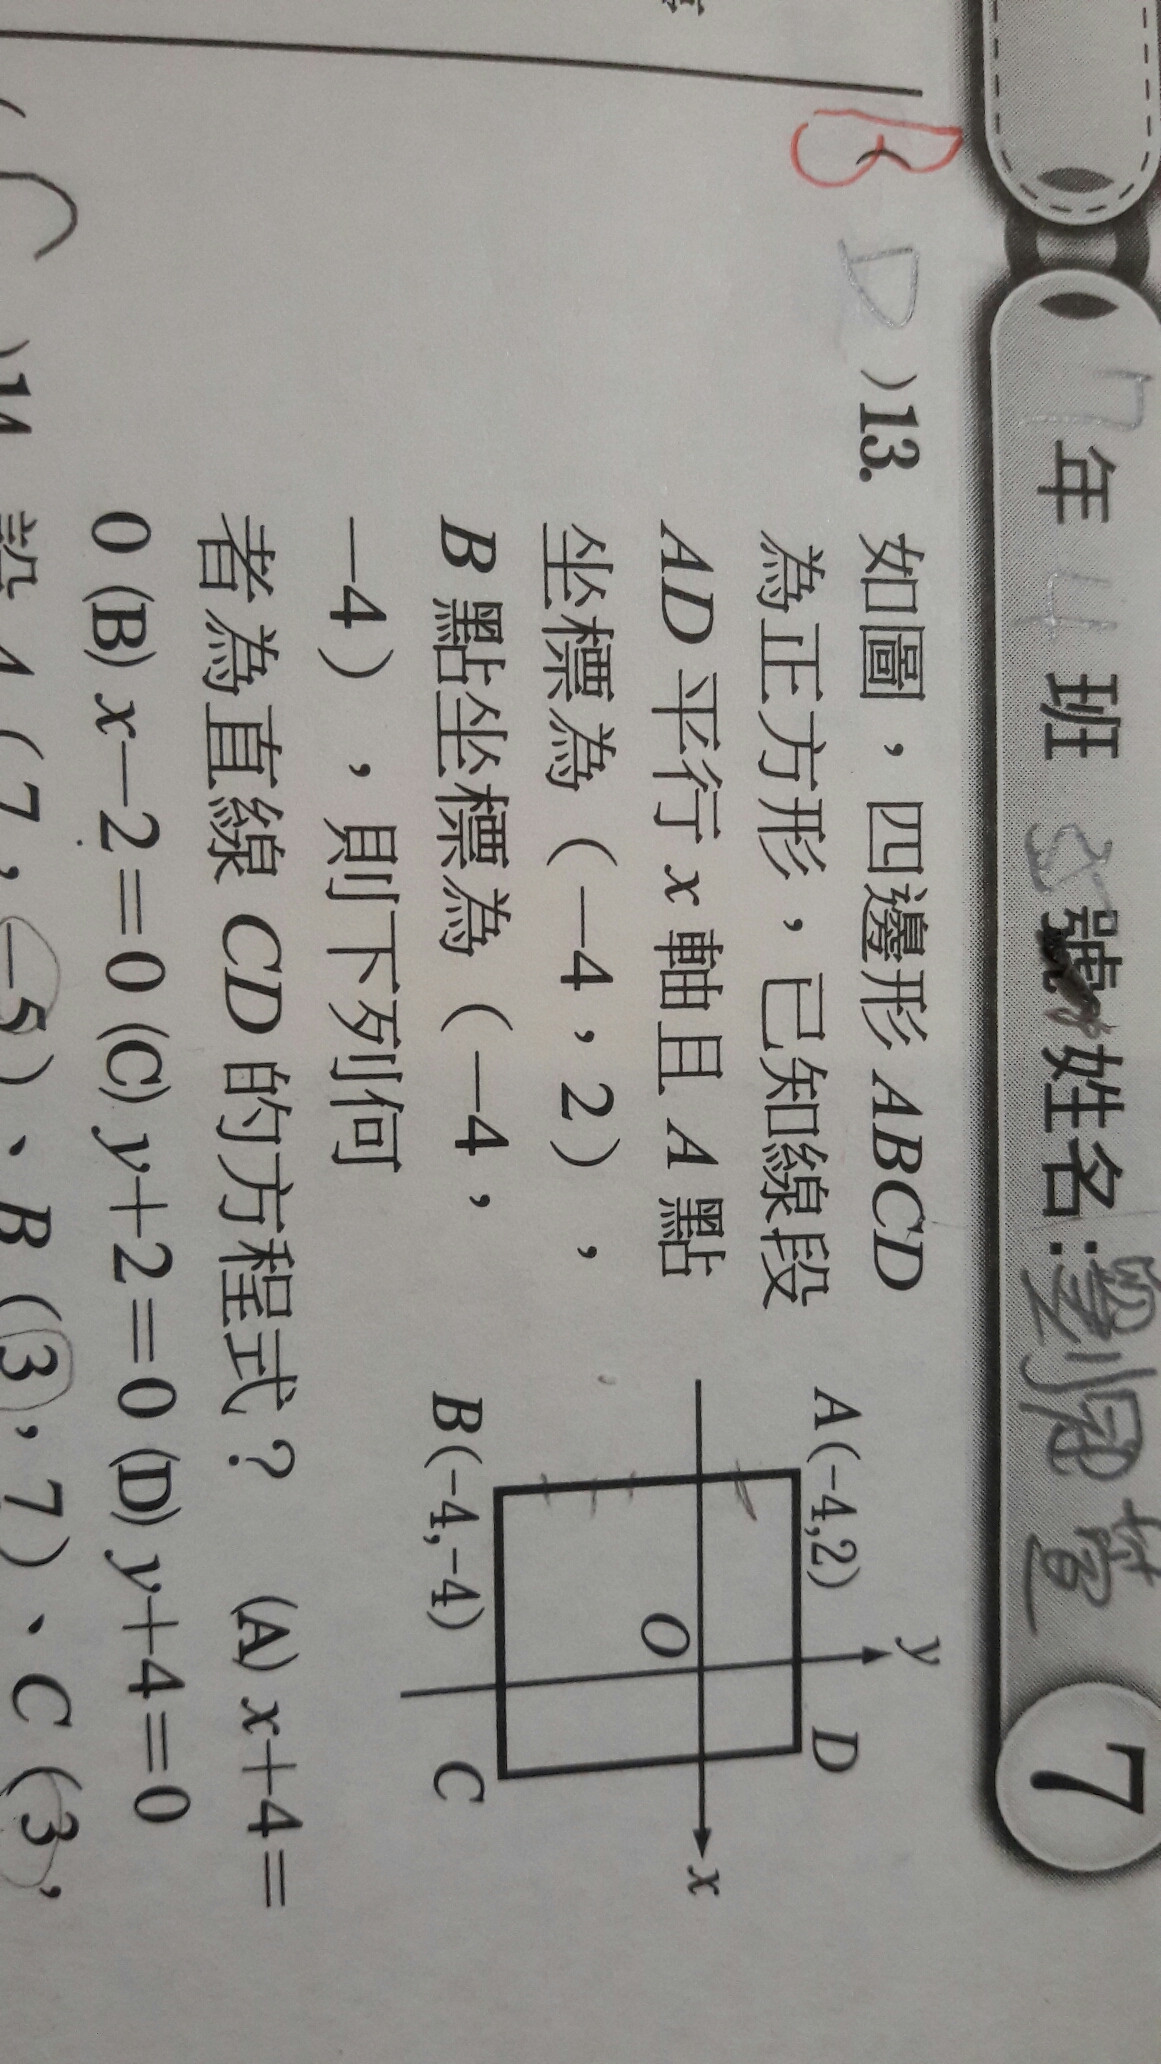 7年4班 號姓名:劉冠萱 7
B
D )13. 如圖,四邊形 ABCD
為正方形,已知線段
AD 平行 x 軸且 A 點
坐標為(-4,2),
B 點坐標為(-4,
-4),則下列何
者為直線 CD 的方程式? (A) x+4=
0 (B) x-2=0 (C) y+2=0 (D) y+4=0
A(-4,2)
y
D
O
x
B(-4,-4)
C
)14. 設 A(7,-5)、B(3,7)、C(3,